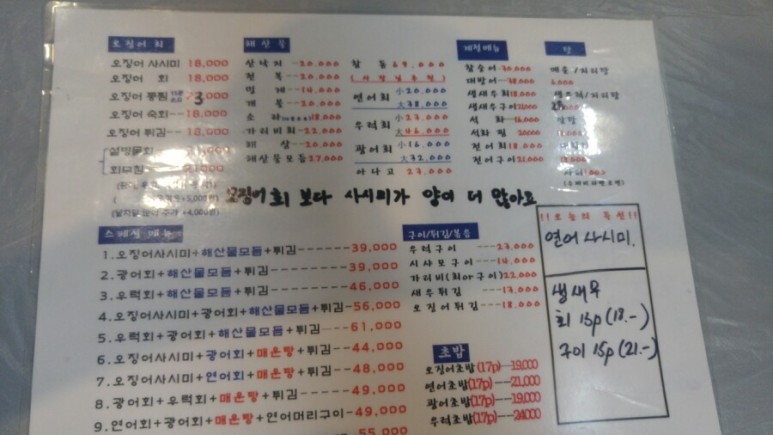 오징어 회
오징어 사시미 18,000
오징어 회 18,000
오징어 통찜
오징어 숙회--18,000
오징어 튀김--18,000
해산물
산낙지--20,000
전복--20,000
멍게--14,000
개불--20,000
소라 18,000
가리비회--22,000
해삼--20,000
해산물모듬 27,000
참돔 69,000
연어회 小20,000
大38,000
우럭회 小27,000
大46,000
광어회 小16,000
大32,000
아나고 27,000
계절메뉴
참숭어--30,000
대방어--38,000
생새우회 18,000
생새우구이 21,000
석화--16,000
석화찜 20,000
전어회 18,000
전어구이 21,000
오징어회 보다 사시미가 양이 더 많아요
스페셜 메뉴
1.오징어사시미+해산물모듬+튀김------39,000
2.광어회+해산물모듬+튀김----------39,000
3.우럭회+해산물모듬+튀김----------46,000
4.오징어사시미+광어회+해산물모듬+튀김-56,000
5.우럭회+광어회+해산물모듬+튀김----61,000
6.오징어사시미+광어회+매운탕+튀김---44,000
7.오징어사시미+연어회+매운탕+튀김---48,000
8.광어회+우럭회+매운탕+튀김-------49,000
9.연어회+광어회+매운탕+연어머리구이-49,000
55,000
구이/튀김/볶음
우럭구이 ---27,000
시샤모구이---14,000
가리비(회or구이) 22,000
새우튀김 ---17,000
오징어튀김---18,000
초밥
오징어초밥(17p)--19,000
연어초밥(17p)---21,000
광어초밥(17p)---19,000
우럭초밥(17p)---24,000
!!오늘의 추천!!
연어 사시미.
생새우
회 15p (18.-)
구이 15p (21.-)